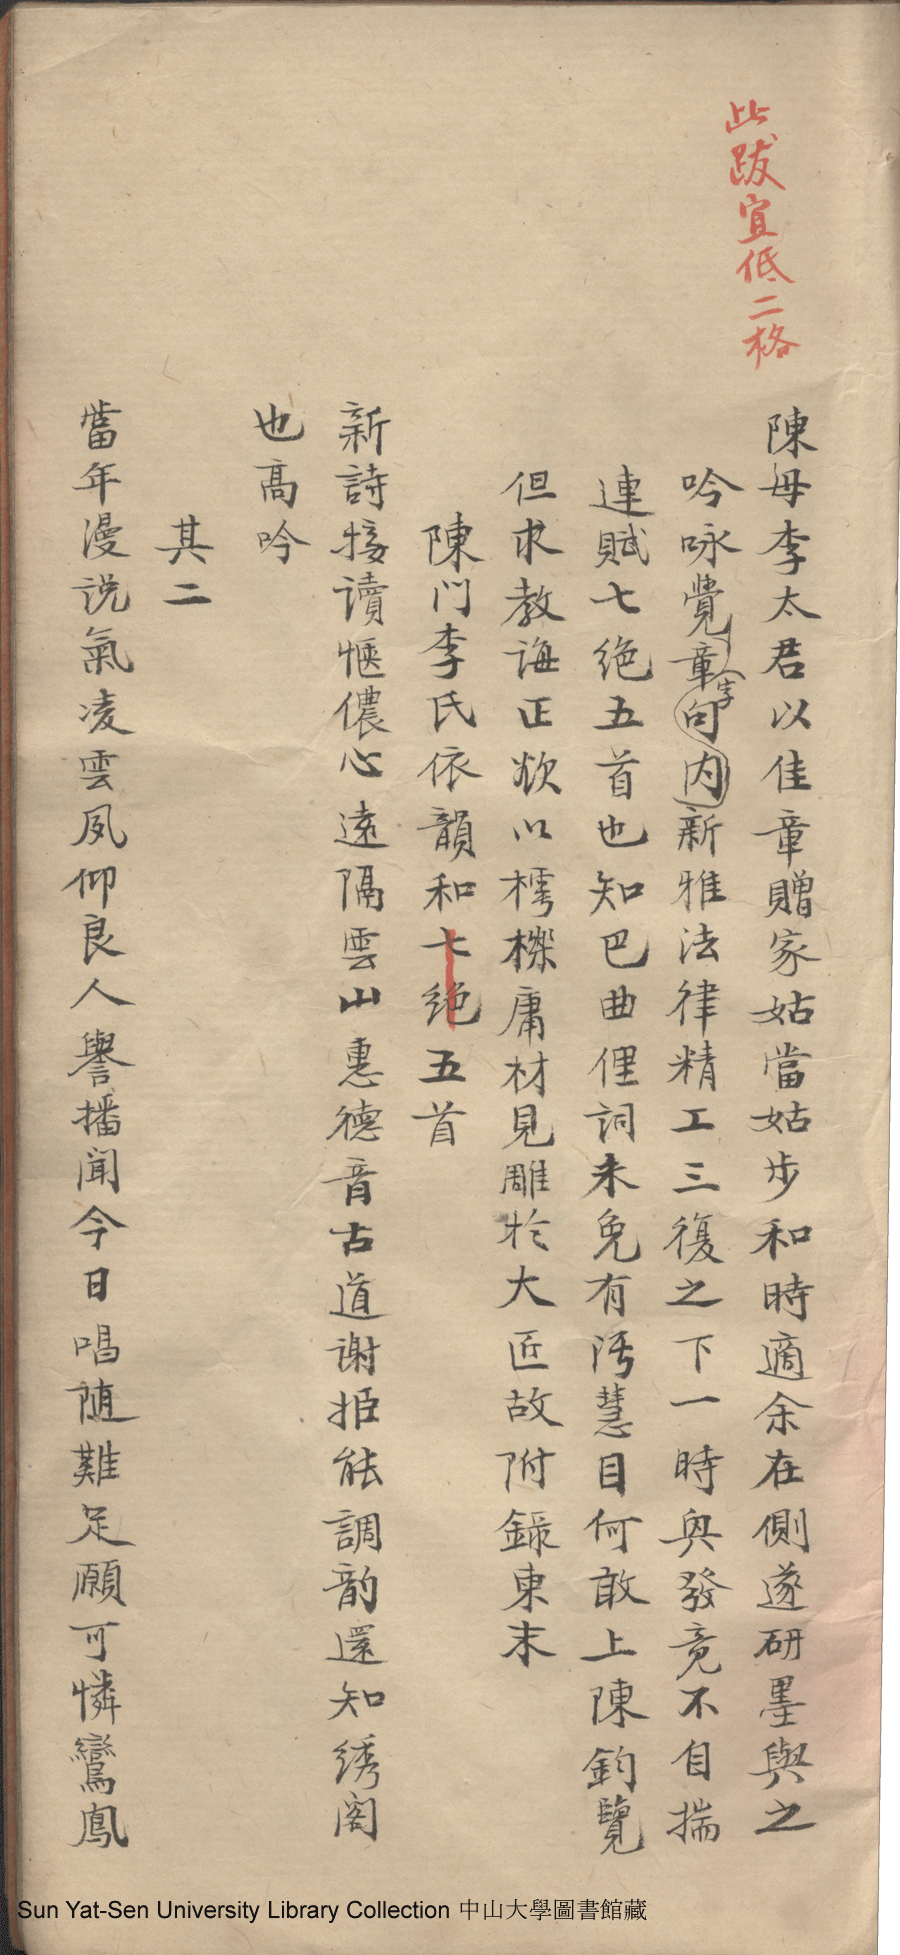 此跋宜低二格
陳母李太君以佳章贈家姑當姑步和時適余在側遂研墨與之
吟咏覺章句内新雅法律精工三復之下一時興發竟不自揣
字
連賦七絶五首也知巴曲俚詞未免有污慧目何敢上陳鈞覽
但求教誨正欲以樗櫟庸材見雕於大匠故附錄柬末
陳門李氏依韻和七絶五首
新詩接讀愜儂心遠隔雲山惠德音古道謝姫能調韵還知綉阁
也高吟
其二
當年漫説氣凌雲夙仰良人譽播聞今日唱随難足願可憐鸞鳳
Sun Yat-Sen University Library Collection 中山大學圖書館藏